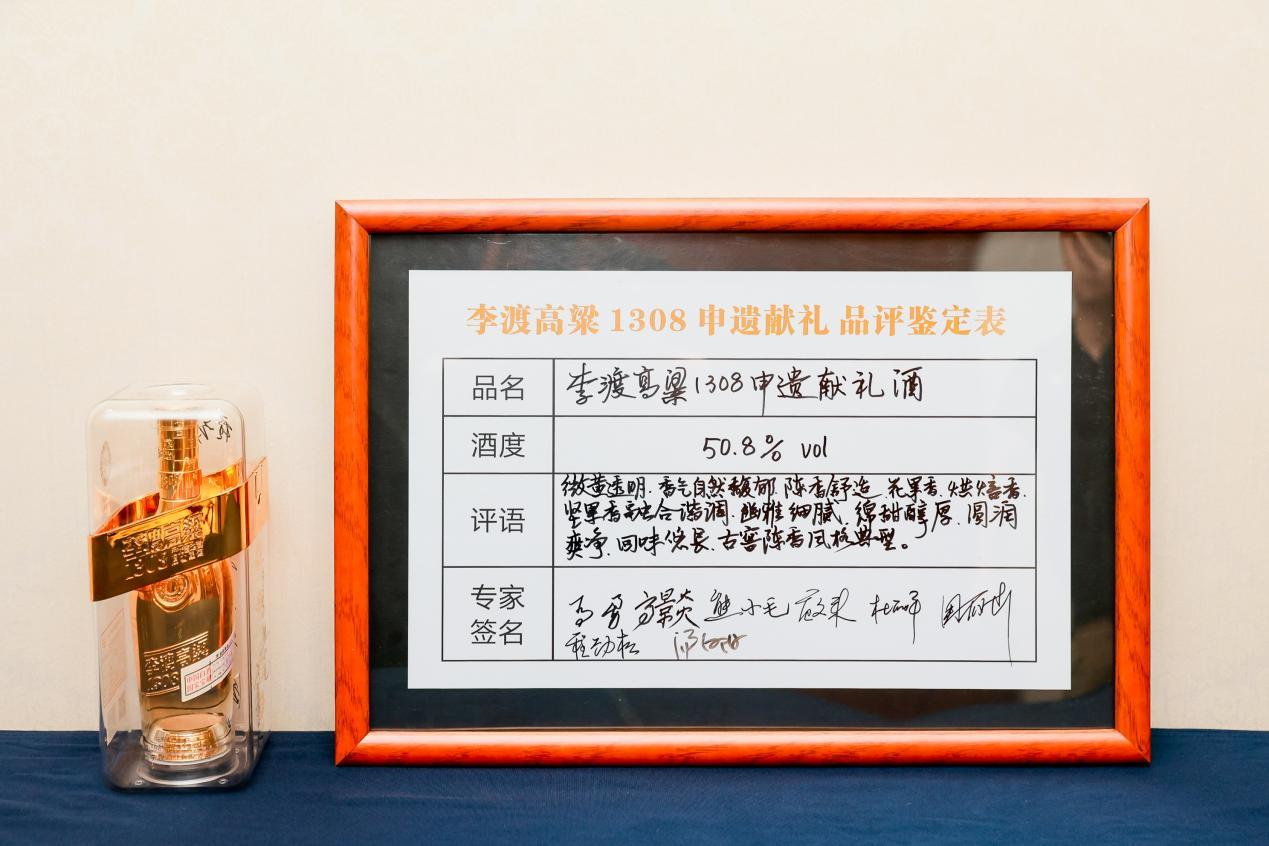 李渡高粱1308申遗献礼 品评鉴定表
品名 李渡高粱1308申遗献礼酒
酒度 50.8% vol
评语 微黄透明、香气自然馥郁、陈香舒适、花果香、烘焙香、
坚果香融合谐调、幽雅细腻、绵甜醇厚、圆润
爽净、回味悠长、古窖陈香风格典型。
专家
签名
高景炎 熊小毛
程劲松
李渡高粱
1308
李渡高粱
1308